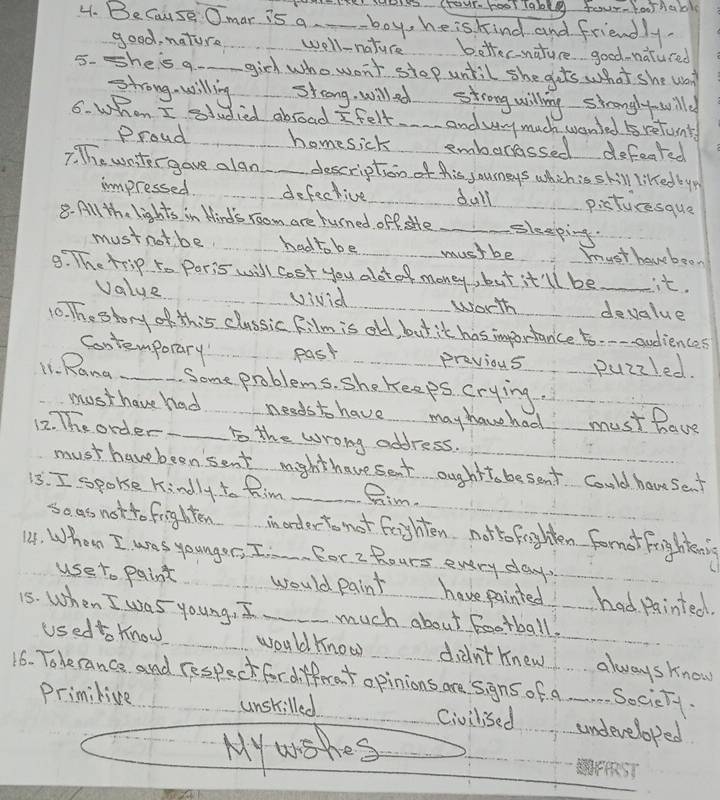 4. Because Omar is a ---- boy, he is kind and friendly.
good-nature well-nature better-nature good-natured
5- She is a ---- girl who won't stop until she gets what she want
strong-willing strong-willed strong willing strongly-willed
6. When I studied abroad I felt ---- and very much wanted to return
Proud homesick embarrassed defeated
7. The writer gave a/an ---- description of his journeys which is still liked by
impressed defective dull picturesque
8- All the lights in Hind's room are turned off. She ---- sleeping.
must not be had to be must be must have been
9. The trip to Paris will cost you alot of money, but it'll be ---- it.
Value vivid worth devalue
10. The story of this classic film is old, but it has importance to ---- audiences
Contemporary past previous puzzled.
11. Rana ---- Some problems. She keeps crying.
must have had needs to have may have had must have
12. The order ---- to the wrong address.
must have been sent might have sent ought to be sent could have sent
13. I spoke kindly to him ---- him.
so as not to frighten in order to not frighten not to frighten for not frightenig
14. When I was younger, I ---- for 2 hours every day.
use to paint would paint have painted had painted.
15. When I was young, I ---- much about football.
used to know would know didn't knew always know
16- Tolerance and respect for different opinions are signs of a ---- Society.
Primitive unskilled Civilised undeveloped
My wishes
FIRST